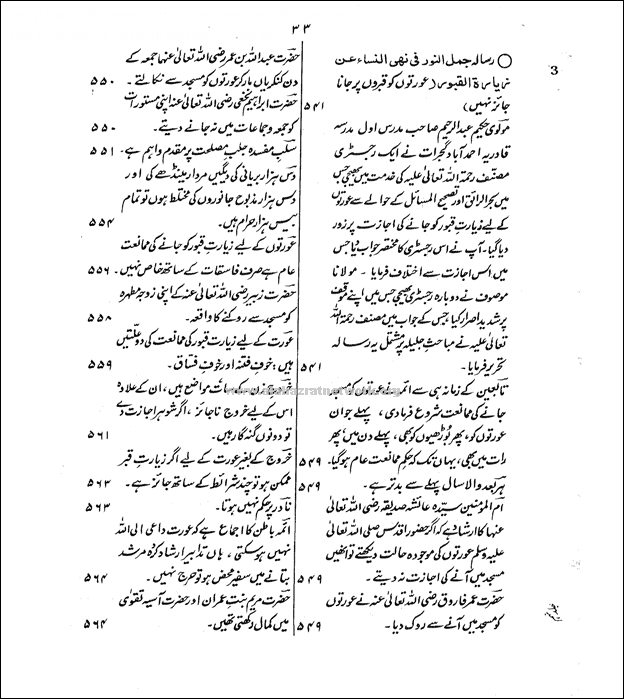 ۳۳
3
○ رسالہ جمل النور فی نھی النساء عن
زیارۃ القبور (عورتوں کو قبروں پر جانا
جائز نہیں) ۵۴۱
مولوی حکیم عبدالرحیم صاحب مدرس اول مدرسہ
قادریہ احمد آباد گجرات نے ایک رجسٹری
مصنف رحمۃ اللہ تعالٰی علیہ کی خدمت میں بھیجی جس
میں بحرالرائق اور تصحیح المسائل کے حوالے سے عورتوں
کے لیے زیارتِ قبور کو جانے کی اجازت پر زور
دیا گیا۔ آپ نے اس رجسٹری کا مختصر جواب دیا جس
میں اس اجازت سے اختلاف فرمایا ۔ مولانا
موصوف نے دوبارہ رجسٹری بھیجی جس میں اپنے موقف
پر شدید اصرار کیا جس کے جواب میں مصنف رحمۃ اللہ
تعالٰی علیہ نے مباحثِ جلیلہ پر مشتمل یہ رسالہ
تحریر فرمایا۔ ۵۴۱
تابعین کے زمانہ ہی سے ائمہ نے عورتوں کو مسجد
جانے کی ممانعت شروع فرمادی ، پہلے جوان
عورتوں کو، پھر بُوڑھیوں کو بھی ، پہلے دن میں پھر
رات میں بھی ، یہاں تک کہ حکمِ ممانعت عام ہوگیا۔ ۵۴۹
ہر بعد والا سال پہلے سے بدتر ہے۔ ۵۴۹
ام المؤمنین سیّدہ عائشہ صدیقہ رضی اللہ تعالٰی
عنہا کا ارشاد ہے کہ اگر حضور اقدس صلی اللہ تعالٰی
علیہ وسلم عورتوں کی موجودہ حالت دیکھتے تو انھیں
مسجد میں آنے کی اجازت نہ دیتے ۔ ۵۴۹
حضرت عمر فاروق رضی اللہ تعالٰی عنہ نے عورتوں
کو مسجد میں آنے سے روک دیا ۔ ۵۴۹
حضرت عبداللہ بن عمر رضی اللہ تعالٰی عنہما جمعہ کے
دن کنکریاں مار کر عورتوں کو مسجد سے نکالتے ۔ ۵۵۰
حضرت ابراہیم نخعی رضی اللہ تعالٰی عنہ اپنی مستورات
کو جمعہ و جماعات میں نہ جانے دیتے ۔ ۵۵۰
سلبِ مفسدہ جلبِ مصلحت پر مقدم و اہم ہے ۔ ۵۵۱
دس ہزار بریانی کی دیگیں مردار مینڈھے کی اور
دس ہزار مذبوح جانوروں کی مختلط ہوں تو تمام
بیس ہزار حرام ہیں۔ ۵۵۴
عورتوں کے لیے زیارتِ قبور کو جانے کی ممانعت
عام ہے صرف فاسقات کے ساتھ خاص نہیں۔ ۵۵۶
حضرت زبیر رضی اللہ تعالٰی عنہ کے اپنی زوجہ مطہرہ
کو مسجد سے روکنے کا واقعہ ۔ ۵۵۸
عورت کے لیے زیارتِ قبور کی ممانعت کی دو علتیں
ہیں : خوفِ فتنہ اور خوفِ فساق ۔ ۵۵۹
خروجِ زن کے سات مواضع ہیں ، ان کے علاوہ
اس کے لیے خروج ناجائز ، اگر شوہر اجازت دے
تو دونوں گنہگار ہیں۔ ۵۶۱
خروج کے بغیر عورت کے لیے اگر زیارتِ قبر
ممکن ہو تو چند شرائط کے ساتھ جائز ہے ۔ ۵۶۳
نادر پر حکم نہیں ہوتا ۔ ۵۶۳
ائمہ باطن کا اجماع ہے کہ عورت داعی الی اللہ
نہیں ہوسکتی ، ہاں تدابیر ارشاد کردہ مرشد
بتانے میں سفیر محض ہو تو حرج نہیں ۔ ۵۶۴
حضرت مریم بنتِ عمران اور حضرت آسیہ تقوٰی
میں کمال رکھتی تھیں۔ ۵۶۴
www.alahazratnetwork.org